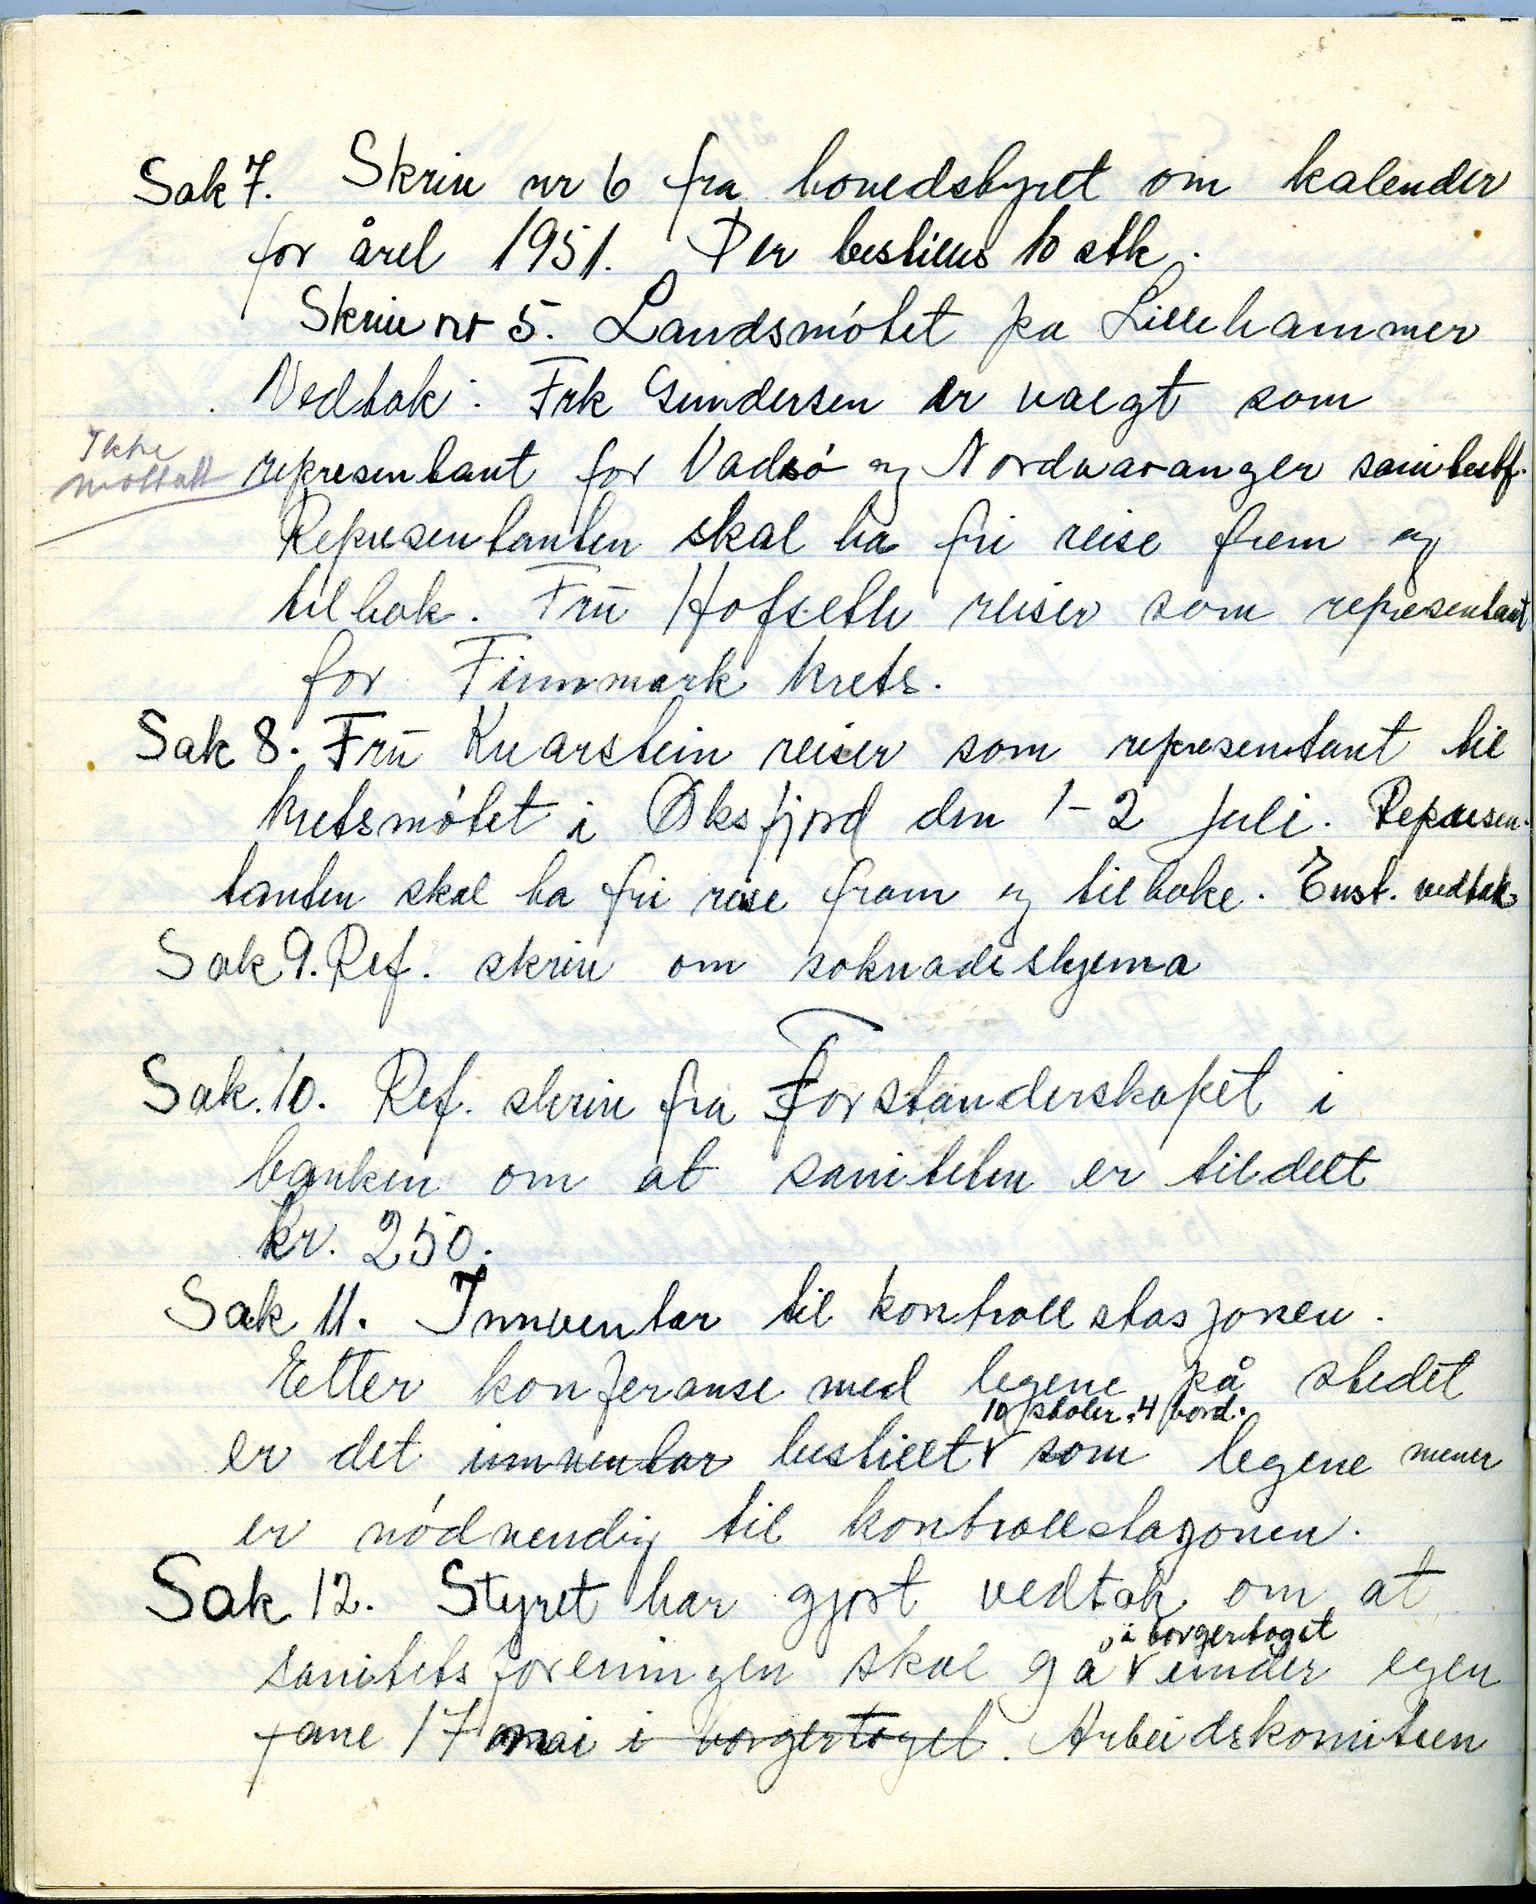 Sak 7. Skriv nr 6 fra hovedstyret om kalender
for året 1951. Der bestilles 10 stk.
Skriv nr 5. Landsmøtet på Lillehammer
Vedtak: Frk Gundersen er valgt som
Ikke
mottatt
representant for Vadsø og Nordvaranger sanitetsf.
Representanten skal ha fri reise frem og
tilbak. Frū Hofseth reiser som representant
for Finnmark krets.
Sak 8. Frū Kvarstein reiser som representant til
kretsmøtet i Øksfjord den 1-2 juli. Represen-
tanten skal ha fri reise fram og tilbake. Enst. vedtak
Sak 9. Ref. skriv om søknadsskjema
Sak. 10. Ref. skriv fra Forstanderskapet i
banken om at saniteten er tildelt
kr. 250.
Sak 11. Innventar til kontrollstasjonen.
Etter konferanse med legene på stedet
10 stoler, 4 bord.
er det innventar bestillt som legene mener
er nødvendig til kontrollstasjonen.
Sak 12. Styret har gjort vedtak om at
i borgertoget
sanitetsforeningen skal gå under egen
fane 17 mai i borgertoget. Arbeidskomiteen